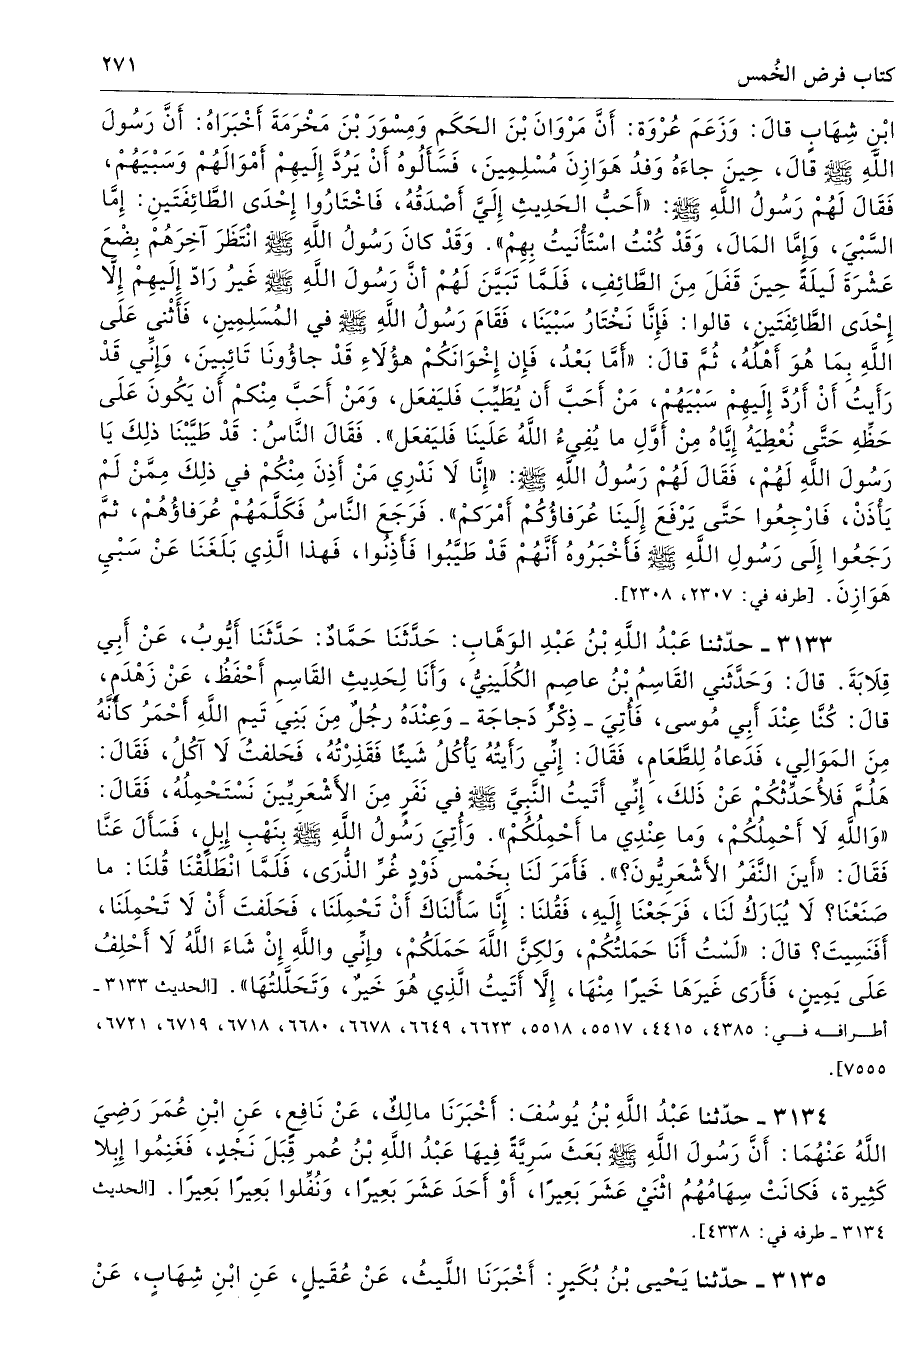 كتاب فرض الخُمس ٢٧١
ابْنِ شِهَابٍ قالَ: وَزَعَمَ عُرْوَة: أَنَّ مَرْوَانَ بْنَ الحَكَمِ وَمِسْوَرَ بْنَ مَخْرَمَةَ أَخْبَرَاهُ: أَنَّ رَسُولَ
اللَّهِ ﷺ قالَ، حِينَ جاءَهُ وَفدُ هَوَازِنَ مُسْلِمِينَ، فَسَأَلُوهُ أَنْ يَرُدَّ إِلَيهِمْ أَمْوَالَهُمْ وَسَبْيَهُمْ،
فَقَالَ لَهُمْ رَسُولُ اللَّهِ ﷺ: «أَحَبُّ الحَدِيثِ إِلَيَّ أَصْدَقُهُ، فَاخْتَارُوا إِحْدَى الطَّائِفَتَينِ: إِمَّا
السَّبْيَ، وَإِمَّا المَالَ، وَقَدْ كُنْتُ اسْتَأْنَيتُ بِهِمْ». وَقَدْ كانَ رَسُولُ اللَّهِ ﷺ انْتَظَرَ آخِرَهُمْ بِضْعَ
عَشْرَةَ لَيلَةً حِينَ قَفَلَ مِنَ الطَّائِفِ، فَلَمَّا تَبَيَّنَ لَهُمْ أنَّ رَسُولَ اللَّهِ ﷺ غَيرُ رَادّ إِلَيهِمْ إِلَّا
إِحْدَى الطَّائِفَتَينِ، قالوا: فَإِنَّا نَخْتَارُ سَبْيَنَا، فَقَامَ رَسُولُ اللَّهِ ﷺ في المُسَلِمِينِ، فَأَثْنى عَلَى
اللَّهِ بِمَا هُوَ أَهْلُهُ، ثُمَّ قالَ: «أَمَّا بَعْدُ، فَإِن إِخْوَانَكُمْ هؤُلَاءِ قَدْ جاؤُونَا تَائِبِينَ، وَإِنِّي قَدْ
رَأَيتُ أَنْ أَرُدَّ إِلَيهِمْ سَبْيَهُمْ، مَنْ أَحَبَّ أَن يُطَيِّبَ فَليَفعَل، وَمَنْ أَحَبَّ مِنكم أَن يَكُونَ عَلَى
حَظِّهِ حَتَّى نُعْطِيَهُ إِيَّاهُ مِنْ أَوَّلِ ما يُفِيءُ اللَّهُ عَلَينَا فَليَفعَل». فَقَالَ النَّاسُ: قَدْ طَيَّبْنَا ذلِكَ يَا
رَسُولَ اللَّهِ لَهُمْ، فَقَالَ لَهُمْ رَسُولُ اللَّهِ ﷺ: «إِنَّا لَا نَدْرِي مَنْ أَذِنَ مِنْكُمْ في ذلِكَ مِمَّنْ لَمْ
يَأْذَنْ، فَارْجِعُوا حَتَّى يَرْفَعَ إِلَينَا عُرَفاؤُكُمْ أَمْرَكمْ». فَرَجَعَ النَّاسُ فَكَلَّمَهُمْ عُرَفاؤُهُمْ، ثمَّ
رَجَعُوا إِلَى رَسُولِ اللَّهِ ﷺ فَأَخْبَرُوهُ أَنَّهُمْ قَدْ طَيَّبُوا فَأَذِنُوا، فَهذا الَّذِي بَلَغَنَا عَنْ سَبْيِ
هَوَازِنَ. [طرفه في: ٢٣٠٧، ٢٣٠٨].
٣١٣٣ ـ حدّثنا عَبْدُ اللَّهِ بْنُ عَبْدِ الوَهَّابِ: حَدَّثَنَا حَمَّادٌ: حَدَّثَنَا أَيُّوبُ، عَنْ أَبِي
قِلَابَةَ. قالَ: وَحَدَّثَني القَاسِمُ بْنُ عاصِمٍ الكُلَينِيُّ، وَأَنَا لِحَدِيثِ القَاسِمِ أَحْفَظُ، عَنْ زَهْدَمٍ،
قالَ: كُنَّا عِنْدَ أَبِي مُوسى، فَأُتِيَ ـ ذِكْرُ دَجاجَة ـ وَعِنْدَهُ رجُلٌ مِنَ بَنِي تَيمِ اللَّهِ أَحْمَرُ كأَنَّهُ
مِنَ المَوَالِي، فَدَعاهُ لِلطَّعَامِ، فَقَالَ: إِنِّي رَأَيتُهُ يَأْكُلُ شَيئًا فَقَذِرْتُهُ، فَحَلفتُ لَا آكُلُ، فَقَالَ:
هَلُمَّ فَلأُحَدِّثْكُمْ عَنْ ذلكَ، إِنِّي أَتَيتُ النَّبِيَّ ﷺ في نَفَرٍ مِنَ الأَشْعَرِيِّينَ نَسْتَحْمِلُهُ، فَقَالَ:
«وَاللَّهِ لَا أَحْمِلُكُمْ، وَما عِنْدِي ما أَحْمِلُكُمْ». وَأُتِيَ رَسُولُ اللَّهِ ﷺ بِنَهْبِ إِبِلٍ، فَسَأَلَ عَنَّا
فَقَالَ: «أَينَ النَّفَرُ الأَشْعَرِيُّونَ؟». فَأَمَرَ لَنَا بِخَمْسِ ذَوْدٍ غُرِّ الذُّرَى، فَلَمَّا انْطَلَقْنَا قُلنَا: ما
صَنَعْنَا؟ لَا يُبَارَكُ لَنَا، فَرَجَعْنَا إِلَيهِ، فَقُلنَا: إِنَّا سَأَلنَاكَ أَنْ تَحْمِلَنَا، فَحَلَفتَ أَنْ لَا تَحْمِلَنَا،
أَفَنَسِيتَ؟ قالَ: «لَسْتُ أَنَا حَمَلتُكُمْ، وَلكِنَّ اللَّهَ حَمَلَكُمْ، وإنِّي واللَّهِ إِنْ شَاءَ اللَّهُ لَا أَحْلِفُ
عَلَى يَمِينٍ، فَأَرَى غَيرَهَا خَيرًا مِنْهَا، إِلَّا أَتَيتُ الَّذِي هُوَ خَيرٌ، وَتَحَلَّلتُهَا». [الحديث ٣١٣٣ ـ
أطــرافــه فــي: ٤٣٨٥، ٤٤١٥، ٥٥١٧، ٥٥١٨، ٦٦٢٣، ٦٦٤٩، ٦٦٧٨، ٦٦٨٠، ٦٧١٨، ٦٧١٩، ٦٧٢١،
٧٥٥٥].
٣١٣٤ ـ حدّثنا عَبْدُ اللَّهِ بْنُ يُوسُفَ: أَخْبَرَنَا مالِكٌ، عَنْ نَافِعٍ، عَنِ ابْنِ عُمَرَ رَضِيَ
اللَّهُ عَنْهُمَا: أَنَّ رَسُولَ اللَّهِ ﷺ بَعَثَ سَرِيَّةً فِيهَا عَبْدُ اللَّهِ بْنُ عُمر قِبَلَ نَجْدٍ، فَغَنِمُوا إِبِلا
كَثِيرة، فَكانَتْ سِهَامُهُمُ اثْنَيْ عَشَرَ بَعِيرًا، أَوْ أَحَدَ عَشَرَ بَعِيرًا، وَنُفِّلوا بَعِيرًا بَعِيرًا. [الحديث
٣١٣٤ ـ طرفه في: ٤٣٣٨].
٣١٣٥ ـ حدّثنا يَحْيى بْنُ بُكَيرٍ: أَخْبَرَنَا اللَّيثُ، عَنْ عُقَيلٍ، عَنِ ابْنِ شِهَابٍ، عَنْ